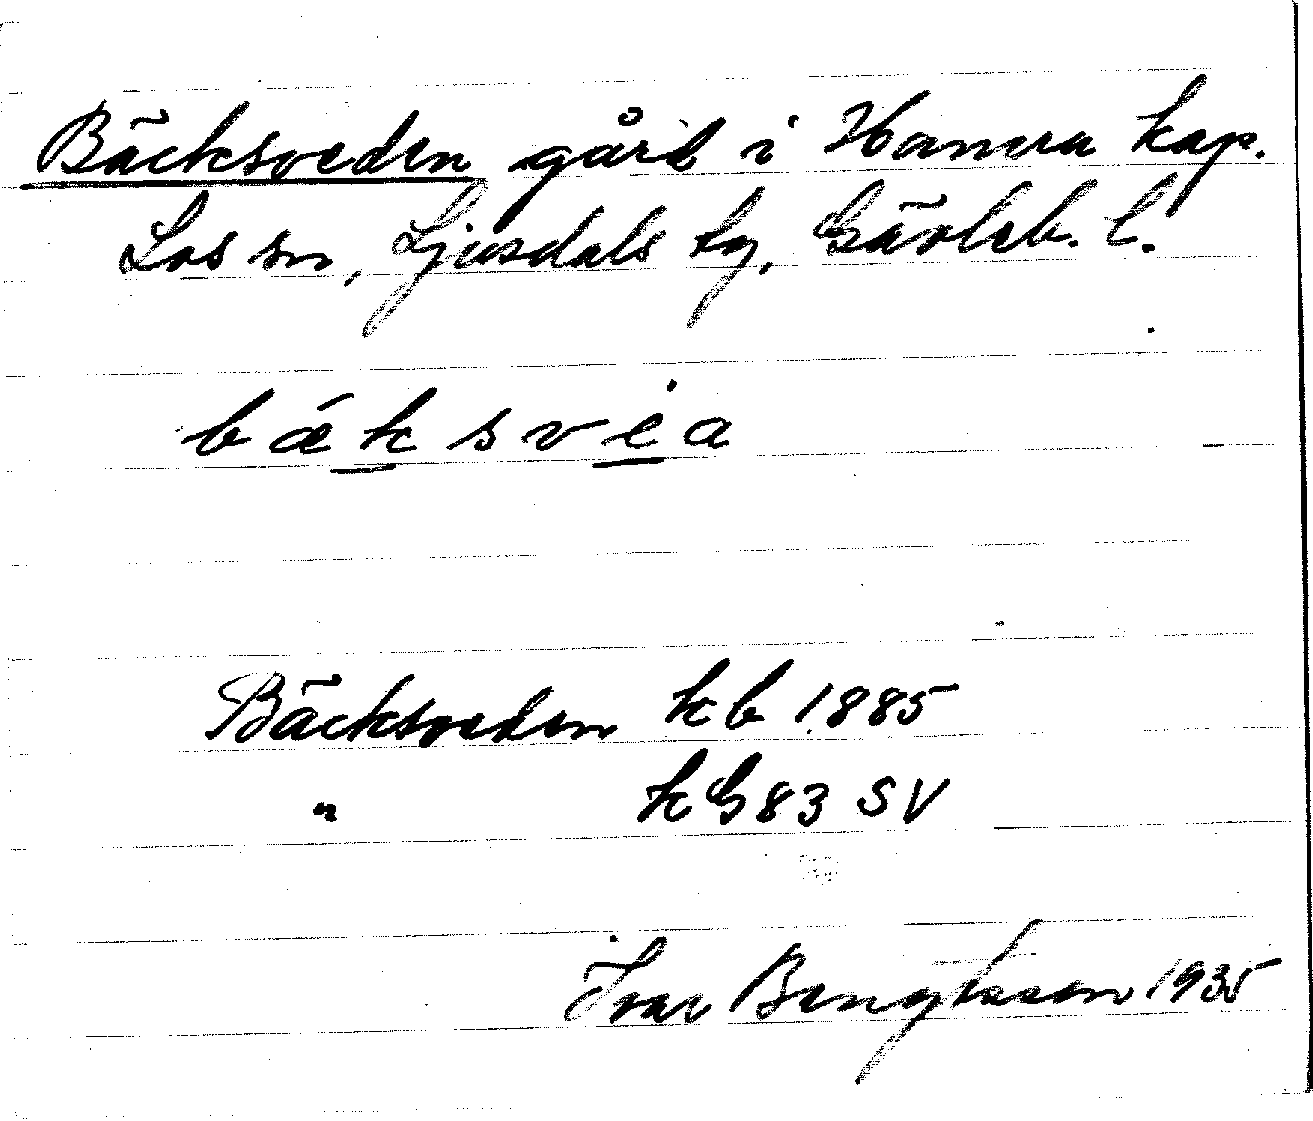 Bäcksveden gård i Hamra kap.
Los sn, Ljusdals tg, Gävleb. l.
bǽksvėa
Bäcksveden kb 1885
" kG83 SV
Ivar Bengtsson 1935